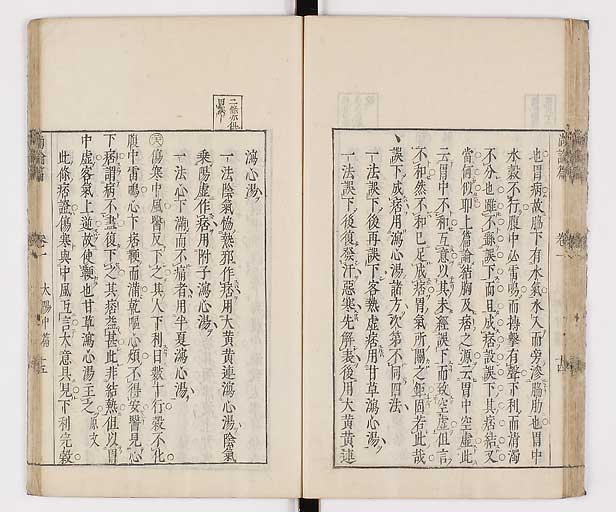 也胃病故脇下有水氣水入而旁滲脇肋也胃中
水穀不行腹中必雷鳴而搏擊有聲下利而清濁
不分也雖不繇誤下而且成痞設誤下其痞結又
當何似耶上篇論結胸及痞之源云胃中空虛此
云胃中不和互意以其未經誤下而致空虛但言
不和然不和已足成痞胃氣所關之鉅固若此哉
誤下成痞用瀉心湯諸方次第不同四法
一法誤下後再誤下客熱虛痞用甘草瀉心湯
一法誤下後復發汗惡寒先解表後用大黃黃連
瀉心湯
一法陰氣協熱邪作痞用大黃黃連瀉心湯陰氣
乘陽虛作痞用附子瀉心湯
一法心下滿而不痛者用半夏瀉心湯
傷寒中風醫反下之其人下利日數十行穀不化
腹中雷鳴心下痞鞕而滿乾嘔心煩不得安醫見心
下痞謂病不盡復下之其痞益甚此非結熱但以胃
中虛客氣上逆故使鞕也甘草瀉心湯主之 原文
此條痞證傷寒與中風互言大意具見下利完穀
尚論篇
卷一
太陽中篇